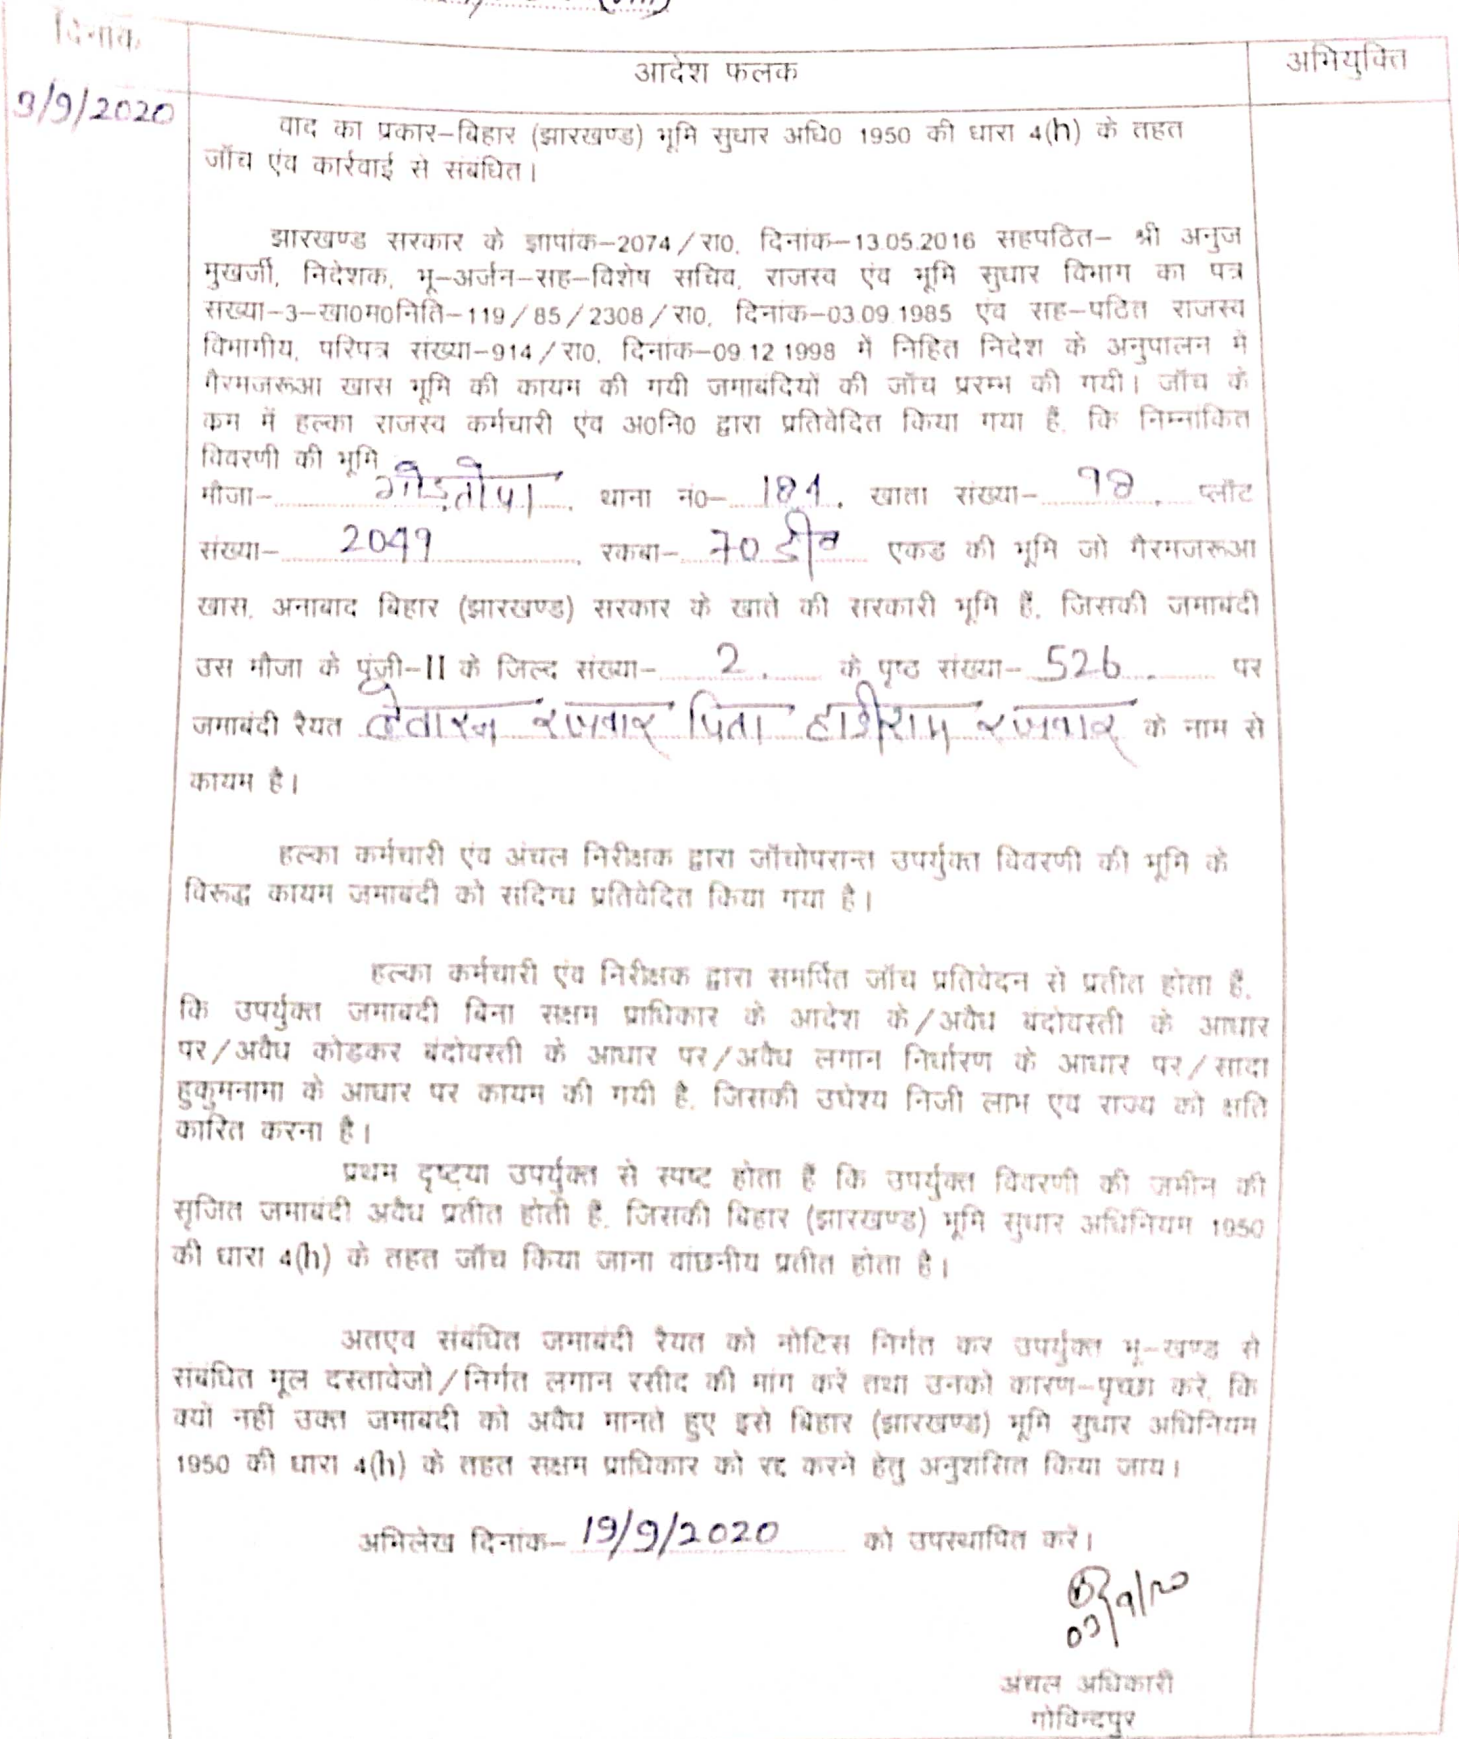 दिनांक
आदेश फलक
अभियुक्ति
3/9/2020
वाद का प्रकार–बिहार (झारखण्ड) भूमि सुधार अधि0 1950 की धारा 4(h) के तहत
जॉच एंव कार्रवाई से संबंधित।
झारखण्ड सरकार के ज्ञापांक–2074/रा0, दिनांक–13.05.2016 सहपठित– श्री अनुज
मुखर्जी, निदेशक, भू–अर्जन–सह–विशेष सचिव, राजस्व एंव भूमि सुधार विभाग का पत्र
संख्या–3–खा0म0निति–119/85/2308/रा0, दिनांक–03.09.1985 एंव सह–पठित राजस्व
विभागीय, परिपत्र संख्या–914/रा0, दिनांक–09.12.1998 में निहित निदेश के अनुपालन में
गैरमजरूआ खास भूमि की कायम की गयी जमाबंदियों की जॉच प्ररम्भ की गयी। जॉच के
कम में हल्का राजस्व कर्मचारी एंव अ0नि0 द्वारा प्रतिवेदित किया गया हैं, कि निम्नांकित
विवरणी की भूमि
मौजा– गोड़तोपा, थाना नं0– 184, खाता संख्या– 98, प्लॉट
संख्या– 2049, रकबा– 70 डी0 एकड की भूमि जो गैरमजरूआ
खास, अनाबाद बिहार (झारखण्ड) सरकार के खाते की सरकारी भूमि हैं, जिसकी जमाबंदी
उस मौजा के पूंजी–II के जिल्द संख्या– 2. के पृष्ठ संख्या– 526 . पर
जमाबंदी रैयत रजवार पिता रजवार के नाम से
कायम है।
हल्का कर्मचारी एंव अंचल निरीक्षक द्वारा जॉचोपरान्त उपर्युक्त विवरणी की भूमि के
विरूद्ध कायम जमाबंदी को संदिग्ध प्रतिवेदित किया गया है।
हल्का कर्मचारी एंव निरीक्षक द्वारा समर्पित जॉच प्रतिवेदन से प्रतीत होता है,
कि उपर्युक्त जमाबंदी बिना सक्षम प्राधिकार के आदेश के/अवैध बंदोवस्ती के आधार
पर/अवैध कोडकर बंदोवस्ती के आधार पर/अवैध लगान निर्धारण के आधार पर/सादा
हुकुमनामा के आधार पर कायम की गयी है, जिसकी उधेश्य निजी लाभ एंव राज्य को क्षति
कारित करना है।
प्रथम दृष्टया उपर्युक्त से स्पष्ट होता हैं कि उपर्युक्त विवरणी की जमीन की
सृजित जमाबंदी अवैध प्रतीत होती हैं, जिसकी बिहार (झारखण्ड) भूमि सुधार अधिनियम 1950
की धारा 4(h) के तहत जॉच किया जाना वांछनीय प्रतीत होता है।
अतएव संबंधित जमाबंदी रैयत को नोटिस निर्गत कर उपर्युक्त भू–खण्ड से
संबंधित मूल दस्तावेजो/निर्गत लगान रसीद की मांग करें तथा उनको कारण–पृच्छा करें, कि
क्यों नहीं उक्त जमाबंदी को अवैध मानते हुए इसे बिहार (झारखण्ड) भूमि सुधार अधिनियम
1950 की धारा 4(h) के तहत सक्षम प्राधिकार को रद्द करने हेतु अनुशंसित किया जाय।
अभिलेख दिनांक– 19/9/2020 को उपस्थापित करें।
अंचल अधिकारी
गोविन्दपुर